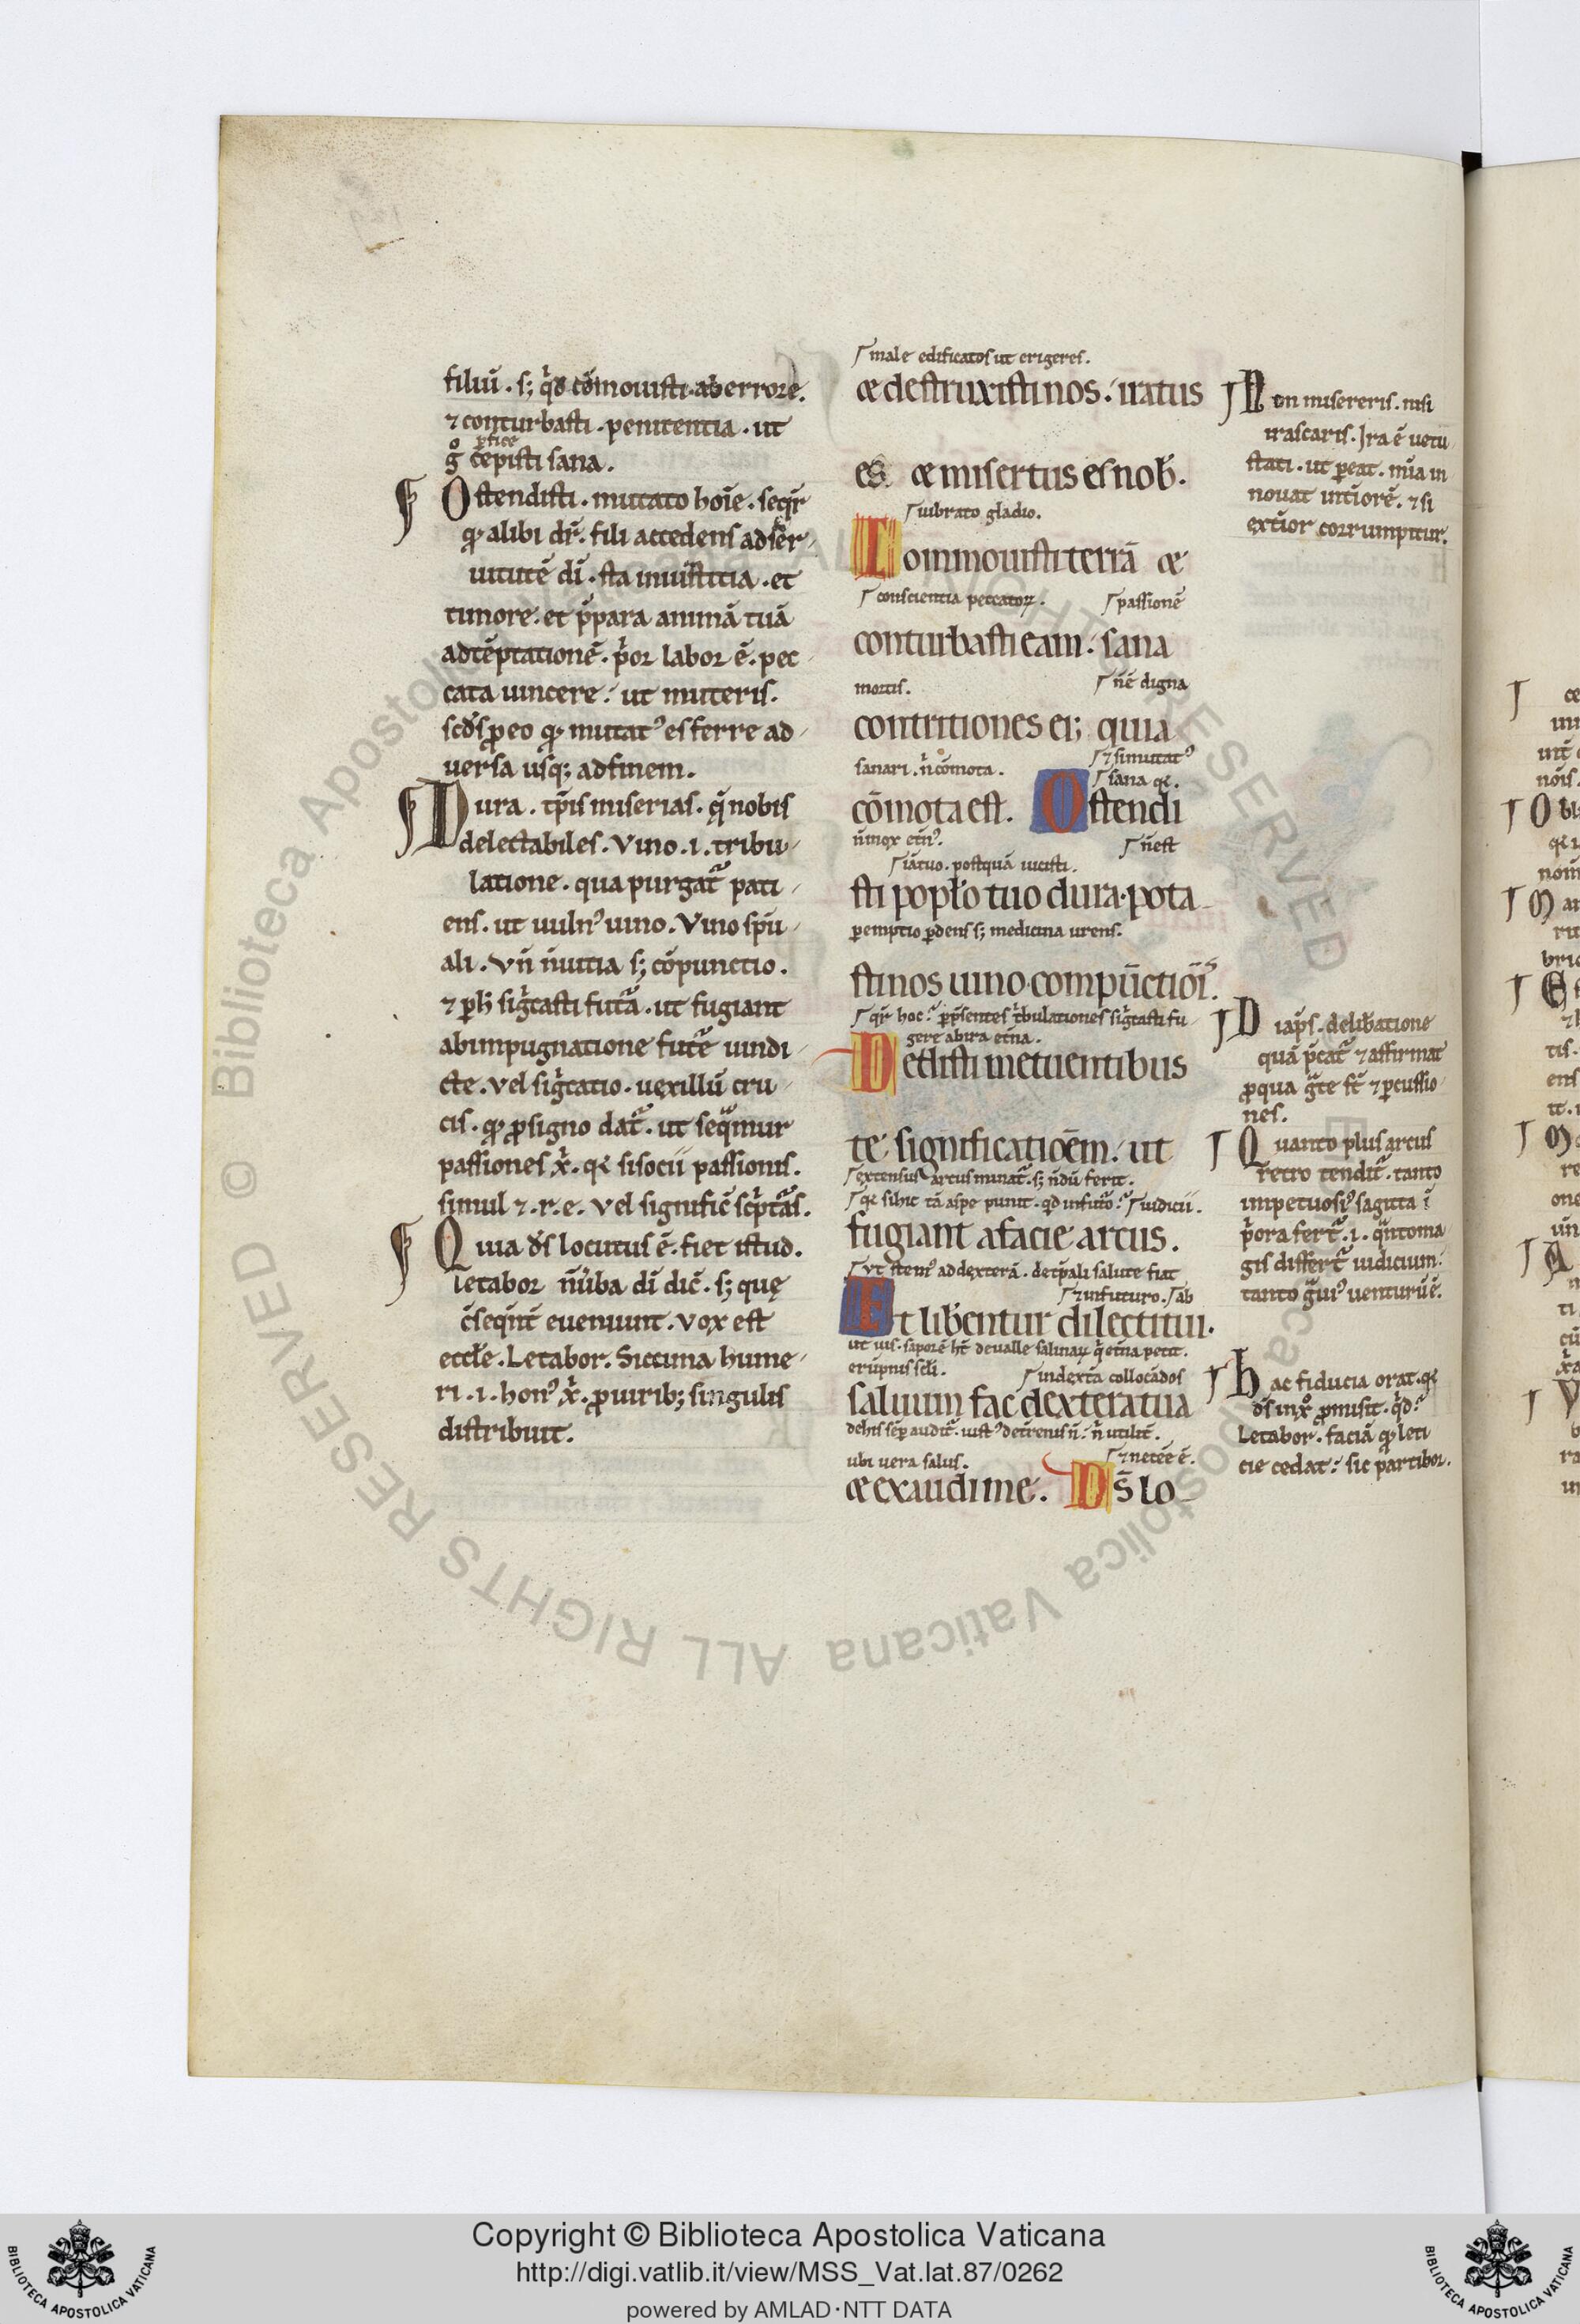 filiū . s; q̇d cōmouisti ab errore.
⁊ conturbasti . penitentia . ut
ꝑfice
g̊ cepisti sana .
Ostendisti . mutato hoīe . seqr̄
qꝫ alibi dr̄ . fili accedens ad ser
uitutē dī . sta in iustitia . et
timore . et p̄para animā tuā
ad tēptationē . p̓or labor ē . pec
cata uincere . ut muteris .
scd̄s ꝓ eo qꝫ mutatꝰ es ferre ad
uersa usqꝫ ad finem .
Dura . tp̄is miserias . q̄ nobis
delectabiles . Vino . i . tribu
latione . qua purgat᷑ pati
ens . ut uulnꝰ uino . Vino spū
ali . Vn̄ n̄ uitia s; cōpunctio .
⁊ ꝑ h̄ sig̓casti futā . ut fugiant
ab impugnatione futē uindi
cte . Vel sig̓catio . uexillū cru
cis . qꝫ ꝓ signo dat᷑ . ut seq̄mur
passiones x̓ . qꝛ si socii passionis .
simul ⁊ . r . e . Vel signific̄ sc̓ptās .
Quia d̄s locutus ē . fiet istud .
letabor n̄ uba dī dic̄ . s; quę
c̄seqn̄t eueniunt . Vox est
eccl̄e . Letabor . Siccima hume
ri . i . honꝰ x̓ . ꝓ uirib; singulis
distribuit .
male edificatos ut erigeres .
& destruxisti nos . iratus
es & misertus es nob̄ .
uibrato gladio .
Commouisti terrā &
conscientia peccatoꝝ . passionē
conturbasti eam . sana
mortis . n̄ ē digna
contritiones ei; quia
sanari . n̓ cōmota . ⁊ si mutatꝰ
sana qꝛ .
cōmota est . Ostendi
n̄ mox etn̓ . n̄ est
iā tuo . postquā uicisti .
sti popl̄o tuo dura . pota
ꝑemptio ꝑdens s; medicina urens .
sti nos uino compūctiōīs .
qr̄ hoc . ꝑ p̄sentes t̓bulationes sig̓casti fu
gere ab ira et̄na .
Dedisti metuentibus
te significatiōem . ut
extensus arcus minat᷑ . s; n̄dū ferit .
qꝛ si hic tā aspe punit . qd in futō . iudicii .
fugiant a facie arcus .
ut stemꝰ ad dexterā . de tp̄ali salute fiat
⁊ in futuro . ab
Et libentur dilecti tui .
ut uis . saporē ht̄ de ualle salinaꝝ q̓ et̄na petit .
erūpnis scl̄i . in dext̄a collocādos
saluum fac dextera tua
de his sēꝑ audit᷑ . iustꝰ de t̄renis n̄ . n̓ utilit̄ .
ubi uera salus . ⁊ necēe ē .
& exaudi me . Ds̄ lo
Non misereris . nisi
irascaris . Ira ē uetu
stati . ut ꝑeat . mīa in
nouat int̓iorē . ⁊ si
ext̓ior corrumpitur .
Diap̄s . delib̄atione
quā p̄cat᷑ ⁊ affirmat
ꝓ qua ḡte fc̄ ⁊ ꝑcussio
nes .
Quanto plus arcus
retro tendit᷑ . tanto
impetuosiꝰ sagitta ī
p̓ora fert᷑ . i . q̄nto ma
gis differt᷑ iudicium .
tanto g̓uiꝰ uenturū ē .
Hac fiducia orat . qꝛ
d̄s in x̊o ꝓmisit . q̓d
Letabor . faciā qꝫ leti
cie cedat . sic partibor .
Copyright © Biblioteca Apostolica Vaticana
http://digi.vatlib.it/view/MSS_Vat.lat.87/0262
powered by AMLAD·NTT DATA
BIBLIOTECA APOSTOLICA VATICANA
BIBLIOTECA APOSTOLICA VATICANA
© Biblioteca Apostolica Vaticana ALL RIGHTS RESERVED
© Biblioteca Apostolica Vaticana ALL RIGHTS RESERVED